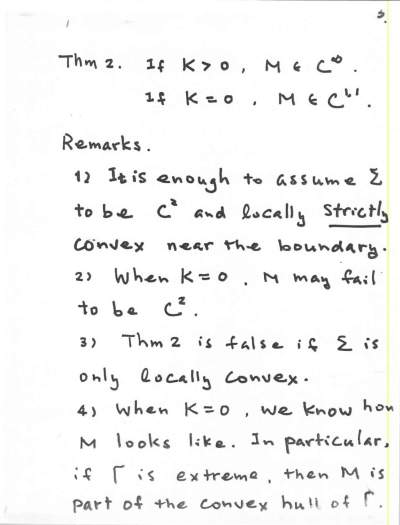 3.
Thm 2. If K > 0, M ∈ C^∞.
If K = 0, M ∈ C^{1,1}.
Remarks.
1) It is enough to assume Σ
to be C² and locally strictly
convex near the boundary.
2) When K = 0, M may fail
to be C².
3) Thm 2 is false if Σ is
only locally convex.
4) When K = 0, we know how
M looks like. In particular,
if Γ is extreme, then M is
part of the convex hull of Γ.